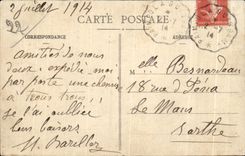 2 juillet 1914
CARTE POSTALE
CORRESPONDANCE
Amitiés de nous
deux. expédié moi
par poste une chemise
à trous trous,
je l'ai oubliée
bons baisers
M. Barillon
Melle Besnardeau
18 rue d'
Le Mans
Sarthe